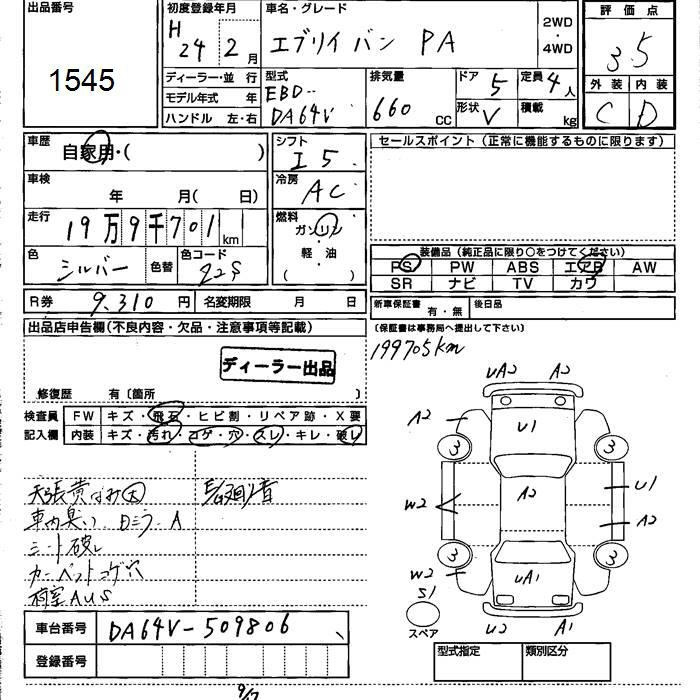 出品番号
1545
初度登録年月
H
24 2月
車名・グレード
エブリイバン PA
2WD
・
4WD
評価点
3.5
外装 内装
C D
ディーラー・並 行
モデル年式 年
ハンドル 左・右
型式
EBD-
DA64V
排気量
660 cc
ドア 5
形状 V
定員 4人
積載 kg
車歴
自家用・( )
車検
年 月( 日)
走行
19万9千701km
色
シルバー
色替
色コード
Z2S
シフト
I 5
冷房
AC
燃料
ガソリン
軽・油
( )
セールスポイント(正常に機能するものに限ります)
装備品(純正品に限り○をつけてください)
PS PW ABS エアB AW
SR ナビ TV カワ
R券 9,310円 名変期限 月 日
新車保証書 有・無 後日品
(保証書は事務局へ提出して下さい)
出品店申告欄(不良内容・欠品・注意事項等記載)
ディーラー出品
修復歴 有〔箇所 〕
199705km
検査員 FW キズ・飛石・ヒビ割・リペア跡・X要
記入欄 内装 キズ・汚れ・コゲ・穴・スレ・キレ・破レ
天張黄ばみ大
車内臭い Dミラー A
シート破レ
カーペットコゲ穴
荷室AUS
車台番号 DA64V-509806
登録番号
UA2 A2
A2 U1
3 3
A2
W2 U1
A2
3 3
W2 UA1
S1
スペア
U2 A1
型式指定 類別区分